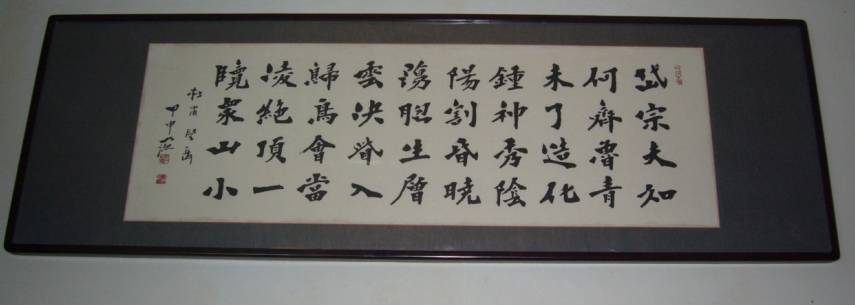 岱宗夫如
何齊魯青
未了造化
鍾神秀陰
陽割昏曉
蕩胸生層
雲決眥入
歸鳥會當
凌絶頂一
覽眾山小
杜甫望岳
甲申